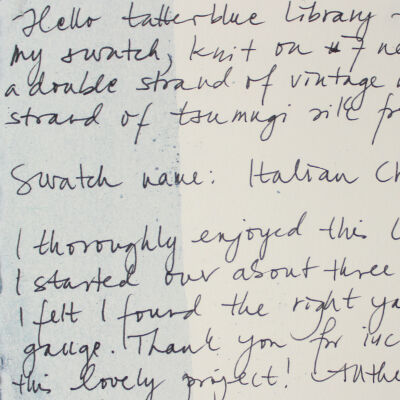 Hello tatterblue library -
my swatch, knit on 7 ne
a double strand of vintage
strand of tsumugi silk fr
Swatch name: Italian Ch
I thoroughly enjoyed this
I started over about three
I felt I found the right ya
gauge. Thank you for inc
this lovely project!